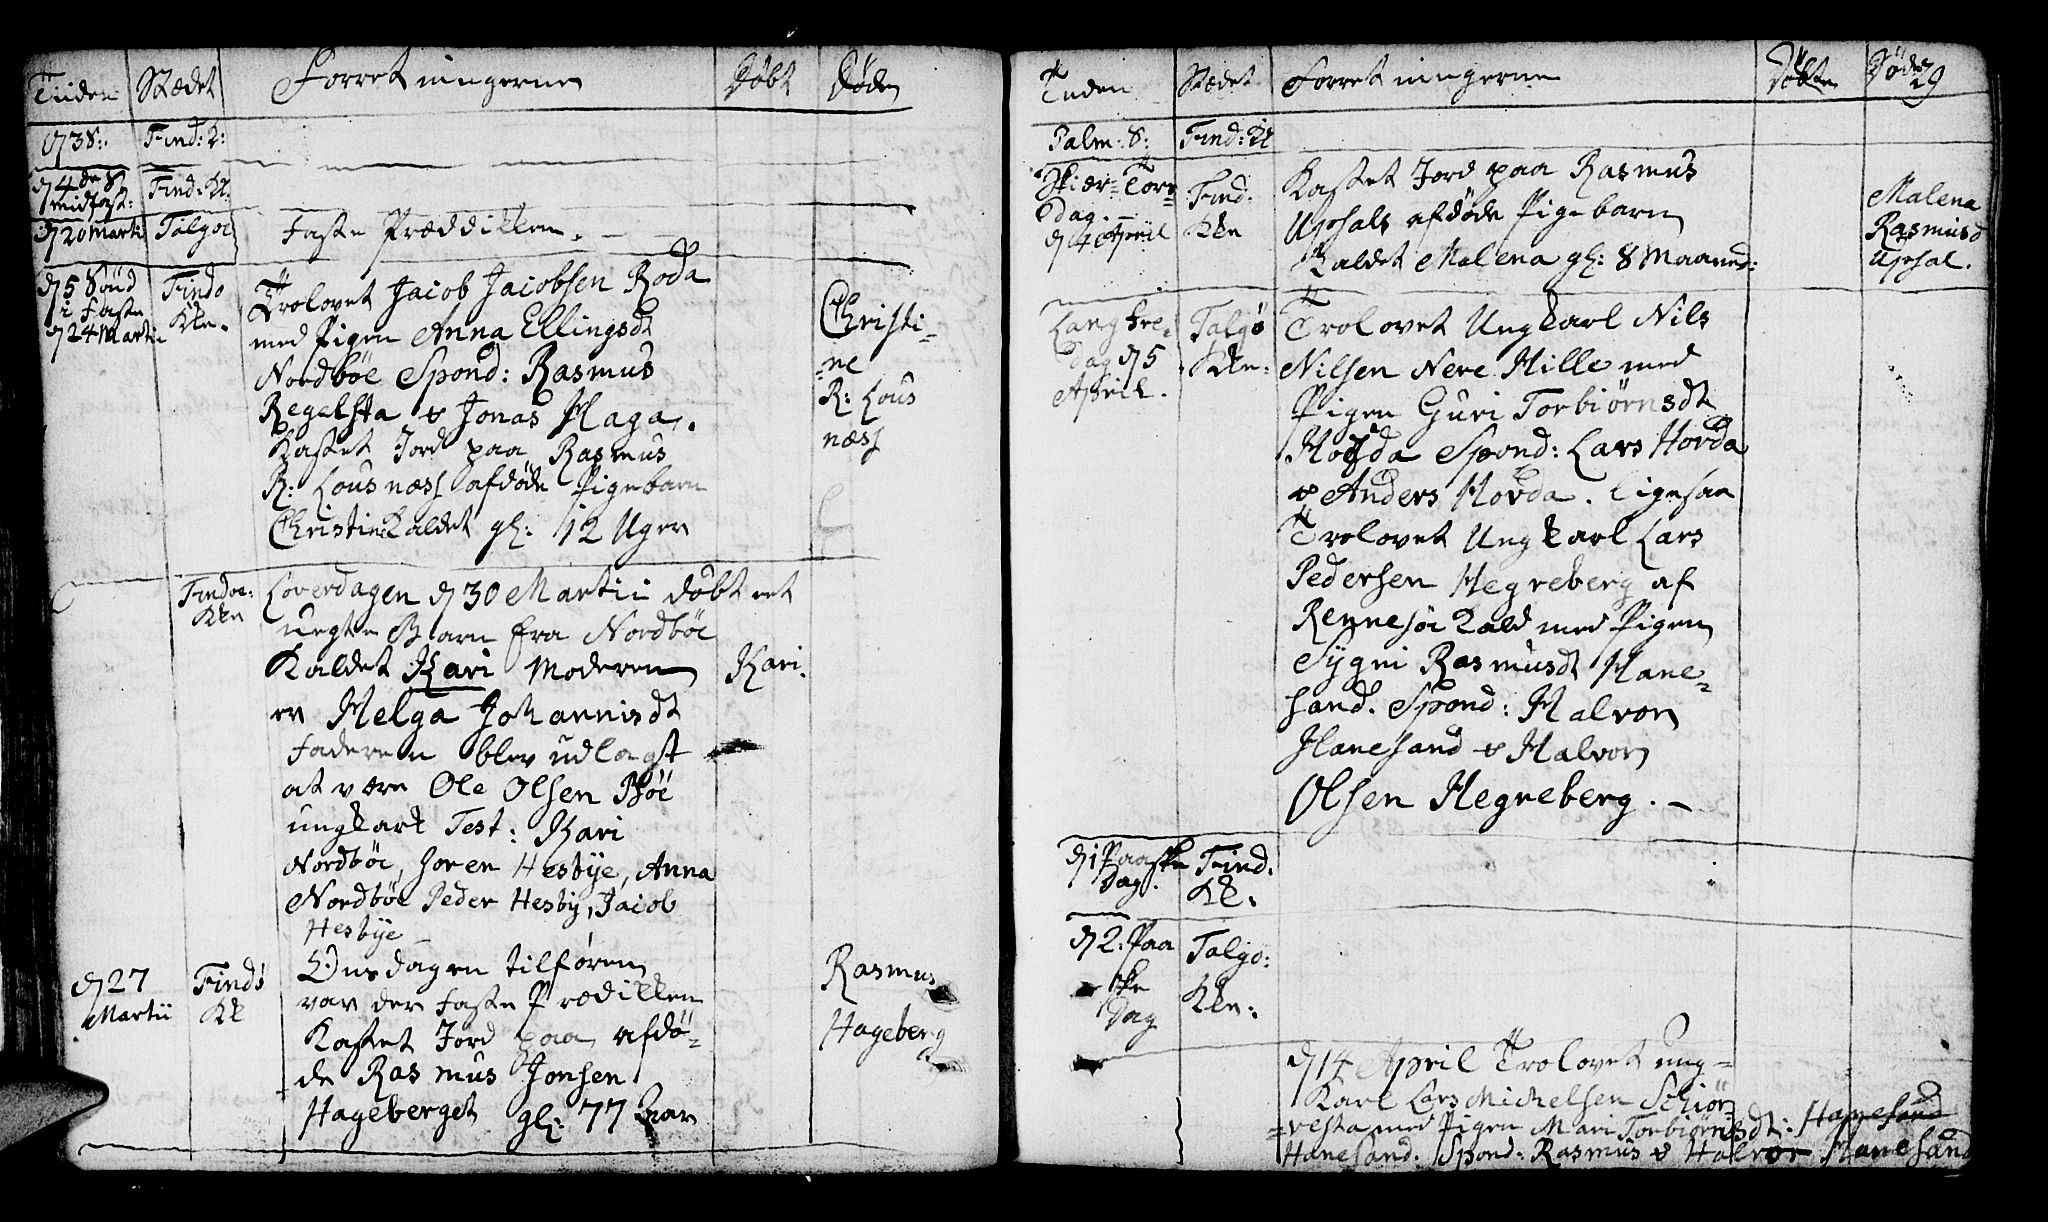 Tiiden Stædet Forretningerne Døbt Døde
1738: Find: K:
d 4de S midfast: Find: Kk.
d 20 Marti Talgøe Faste Præddikken.
d 5 Sønd i faste d 24 Martii
Findø Kke.
Trolovet Jacob Jacobsen Roda
med Pigen Anna Ellingsdt
Nordbøe Spond: Rasmus
Regelsta & Jonas Haga.
Kastet Jord paa Rasmus
R: Lousness afdøde Pigebarn
Christine Kaldet gl: 12 Uger
Christi-
-ne
R: Lous
næss
Findøe: Kke
Løverdagen d 30 Martii døbt et
uegte Barn fra Nordbøe
Kaldet Kari Moderen
er Helga Johannisdt
Faderen blev udlagt
at være Ole Olsen Bøe
ungkarl Test: Kari
Nordbøe, Soren Hesbye, Anna
Nordbøe Peder Hesby, Jacob
Hesbye
Kari.
d 27 Martii
Findø Kk
Onsdagen tilforen
var der Faste Prædikken
Kastet Jord paa afdø-
de Rasmus Jonsen
Hageberget gl: 77 Aar
Rasmus
Hageberg
Tiiden Stædet Forretningerne Døbte Døde
29
Palm: S: Find: Kk
Skier-Tors
dag.
d 4 April
Find. Kke
Kastet Jord paa Rasmus
Upsals afdøde Pigebarn
Kaldet Malena gl: 8 Maaned:
Malena
Rasmusd
Upsal.
Langfre-
dag d 5
April.
Talgø Kke:
Trolovet Ungkarl Nils
Nilsen Nere Hille med
Pigen Guri Torbiørnsdt
Hovda Spond: Lars Hovda
& Anders Hovda. Ligesaa
Trolovet Ungkarl Lars
Pedersen Hegreberg af
Rennesøe Kald med Pigen
Sygni Rasmusdt Hane-
sand. Spond: Halvor
Hanesand & Halvor
Olsen Hegreberg.
d 1 Paaske Dag. Find. Kk.
d 2. Paa
ske
Dag
Talgø: Kke:
d 14 April Trolovet ung-
Karl Lars Michelsen Schiør-
-vesta med Pigen Mari Torbiørnsdt: Hanesand
Hanesand. Spond: Rasmus & Halvor Hanesand